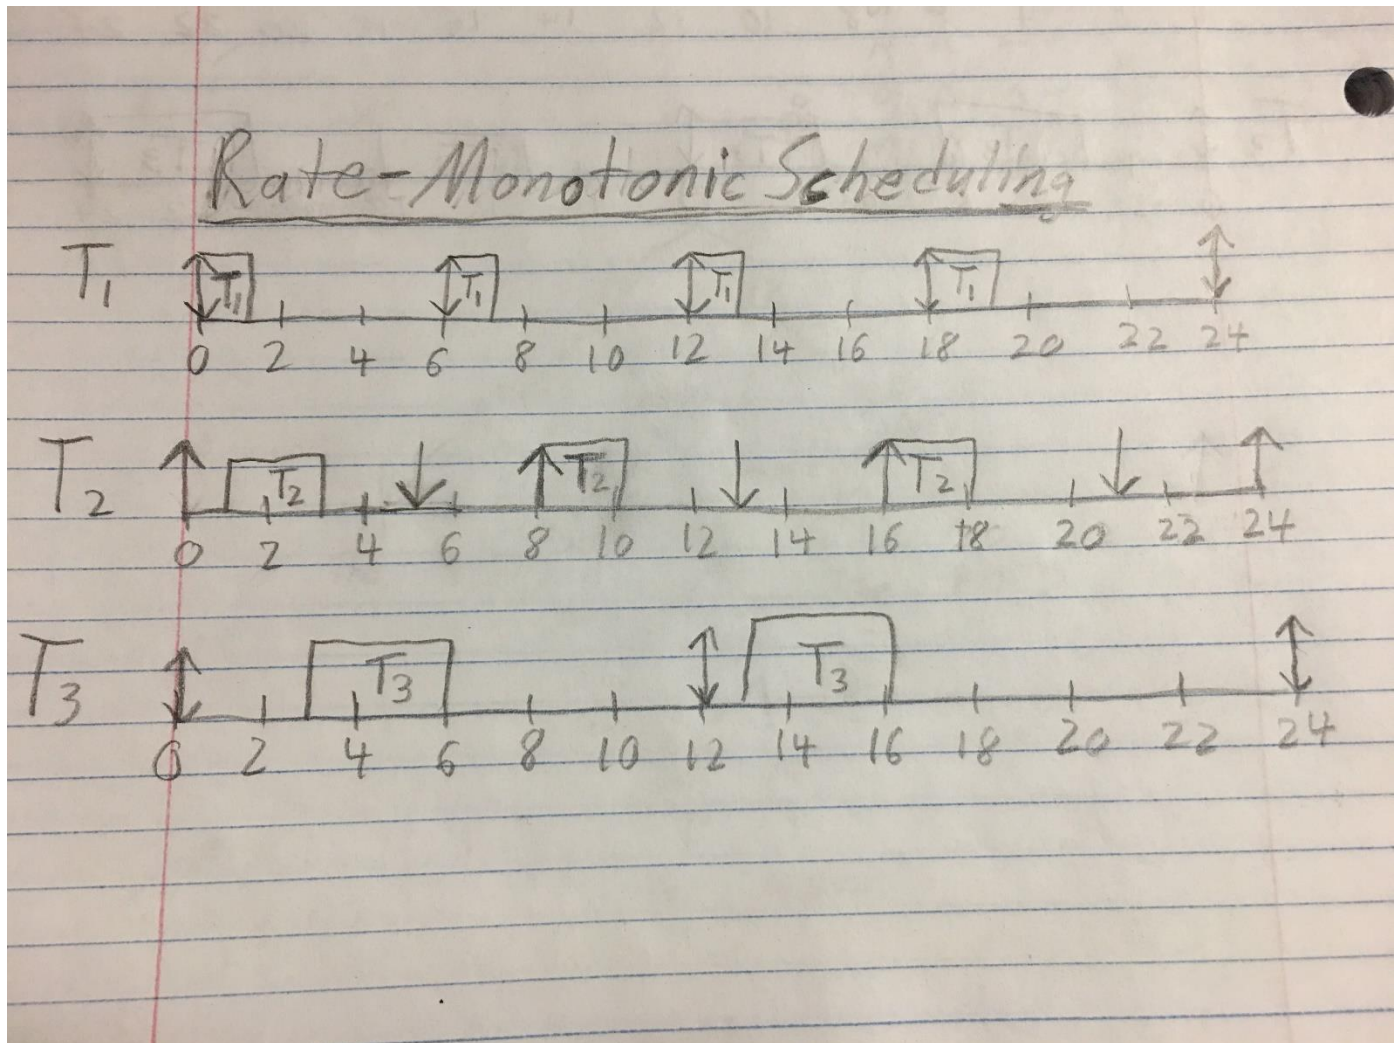 Rate-Monotonic Scheduling
T1 T1 T1 T1 T1
0 2 4 6 8 10 12 14 16 18 20 22 24
T2 T2 T2 T2
0 2 4 6 8 10 12 14 16 18 20 22 24
T3 T3 T3
0 2 4 6 8 10 12 14 16 18 20 22 24